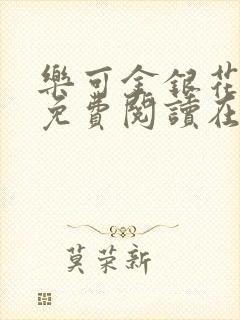 樂可金銀花
免費閱讀在
莫荣新